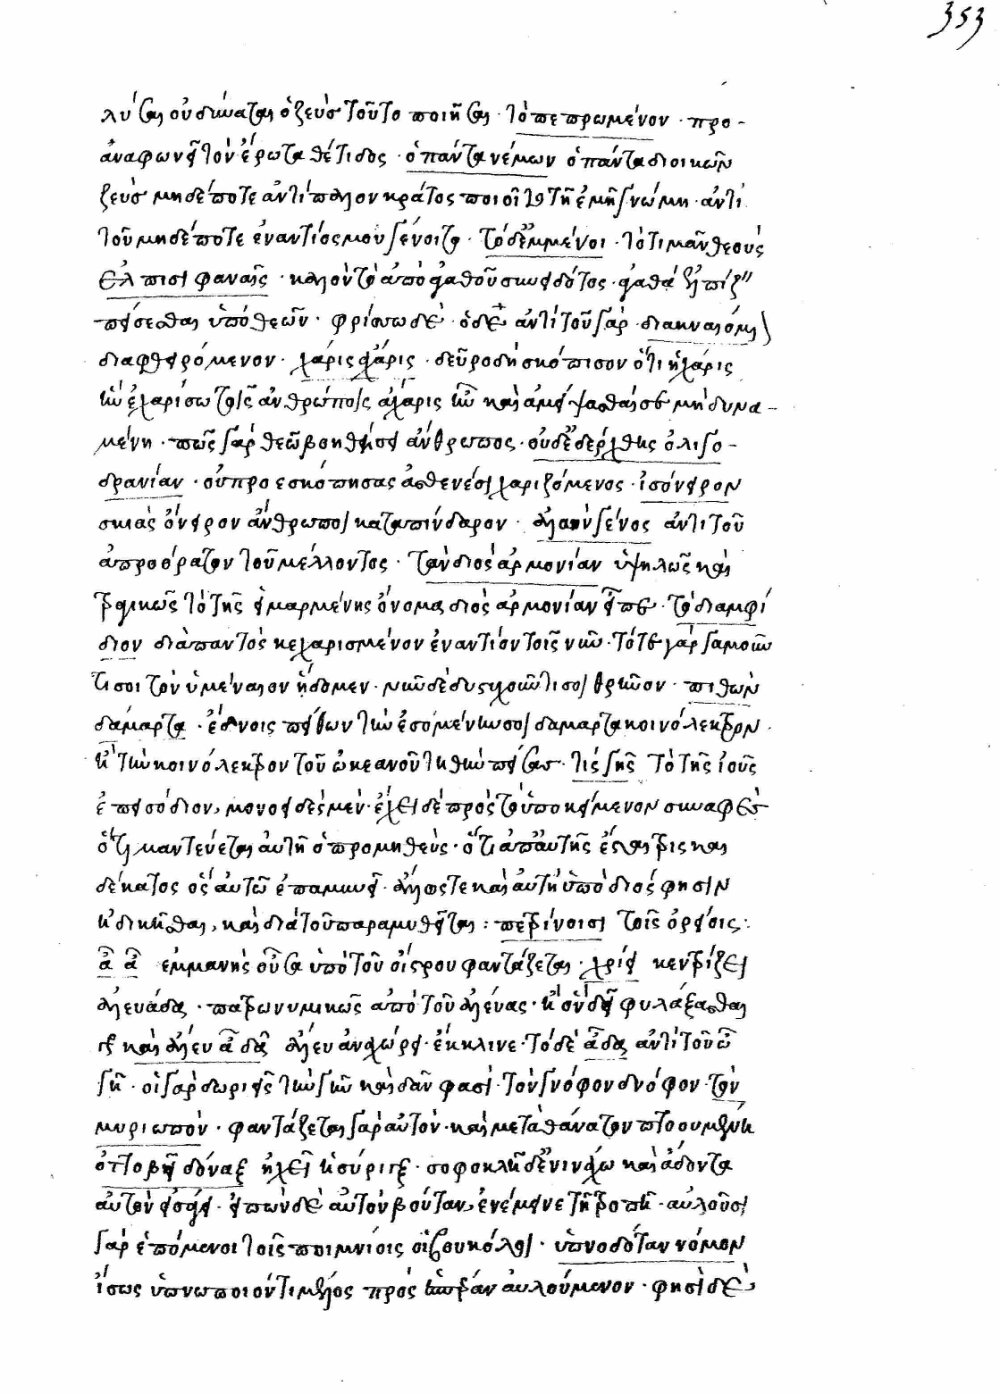 353
λῦσαι οὐ δύναται ὁ ζεὺσ τοῦτο ποιῆσαι · τὸ πεπρωμένον · προ-
αναφωνεῖ τὸν ἔρωτα θέτιδος · ὁ πάντα νέμων ὁ πάντα διοικῶν
ζεὺσ μηδέποτε ἀντίπαλον κράτος ποιοῖτο τῇ ἐμῇ γνώμη · ἀντὶ
τοῦ μηδέποτε ἐναντίος μου γένοιτο · τὸ δ' ἐμμένοι · τὸ τιμᾶν θεοὺς
ἐλπίσι φαναῖς · καλὸν τὸ ἀπὸ ἀγαθοῦ συνειδότος ἀγαθὰ ἐλπίζειν
πείσεσθαι ὑπὸ θεῶν · φρίσσω δὲ · ὁ δὲ ἀντὶ τοῦ γάρ · διακναιόμε
διαφθειρόμενον · χάρις ἄχαρις · δεῦρο δὴ σκόπισον ὅτι ἡ χάρις
ἣν ἐχαρίσω τοῖς ἀνθρώποις ἄχαρις ἦν καὶ ἀμείψασθαί σε μὴ δυνα-
μένη · πῶς γὰρ θεῶ βοηθήσει ἄνθρωπος · οὐδ' ἐδέρχθης ὀλιγο-
δρανίαν · οὐ προεσκόπησας ἀσθενέσι χαριζόμενος · ἰσόνειρον
σκιᾶς ὄνειρον ἄνθρωποι κατὰ πίνδαρον · ἀλαὸν γένος ἀντὶ τοῦ
ἀπροόρατον τοῦ μέλλοντος · τὰν διὸς ἁρμονίαν ὑψηλῶς καὶ
τραγικῶς τὸ τῆς εἱμαρμένης ὄνομα διὸς ἁρμονίαν εἶπε · τὸ διαμφί
διον διὰ παντὸς κεχωρισμένον ἐναντίον τοῖς νῦν · τότε γὰρ γαμοῦν
τί σοι τὸν ὑμέναιον ᾔδομεν · νῦν δὲ δυστυχοῦντί σοι θρῆνον · πιθὼν
δάμαρτα · ἕδνοις πείθων τὴν ἐσομένην σοι δάμαρτα κοινόλεκτρον ·
ἢ τὴν κοινόλεκτρον τοῦ ὠκεανοῦ τηθὺν πείσας · τίς γῆς τὸ τῆς ἰοῦς
ἐπεισόδιον, μονοειδὲς μέν · ἔχει δὲ πρὸς τὸ ὑποκείμενον συναφὲς
ὅτι μαντεύεται αὐτῇ ὁ προμηθεὺς · ὅτι ἀπ' αὐτῆς ἔσται τρὶς καὶ
δέκατος ὃς αὐτῶ ἐπαμυνεῖ · ἄλλως τε καὶ αὐτὴ ὑπὸ διός φησιν
ἠδικῆσθαι, καὶ διὰ τοῦ παραμυθεῖται : πετρίνοισι τοῖς ὀρείοις ·
ἆ ἆ ἐμμανὴς οὖσα ὑπὸ τοῦ οἴστρου φαντάζεται · χρίει κεντρίζει
ἀλευάδα · πατρωνυμικῶς ἀπὸ τοῦ ἀλεύας · ἢ οὐδεῖ φυλάξασθαι
γρ καὶ ἄλευ ἆ δᾶ ἄλευ ἀναχώρει · ἔκκλινε · τὸ δὲ ἆ δα ἀντὶ τοῦ ὦ
γῆ · οἱ γὰρ δωριεῖς τὴν γῆν καὶ δᾶν φασὶ · τὸν γνόφον δνόφον · τὸν
μυριωπὸν · φαντάζεται γὰρ αὐτὸν · καὶ μετὰ θάνατον πτοουμένη
ὀττοβεῖ δόναξ ἠχεῖ ἡ σύριγξ · σοφοκλῆς δ' ἐν ἰνάχω καὶ ἄδοντα
αὐτὸν εἰσάγει · εἰπὼν δὲ αὐτὸν βούταν, ἐνέμεινε τῇ τροπῆ · αὐλοῦσι
γὰρ ἑπόμενοι τοῖς ποιμνίοις οἱ βουκόλοι · ὑπνοδόταν νόμον
ἴσως ὑπνωποιόν τι μέλος πρὸς αὐλούμενον · φησὶ δὲ